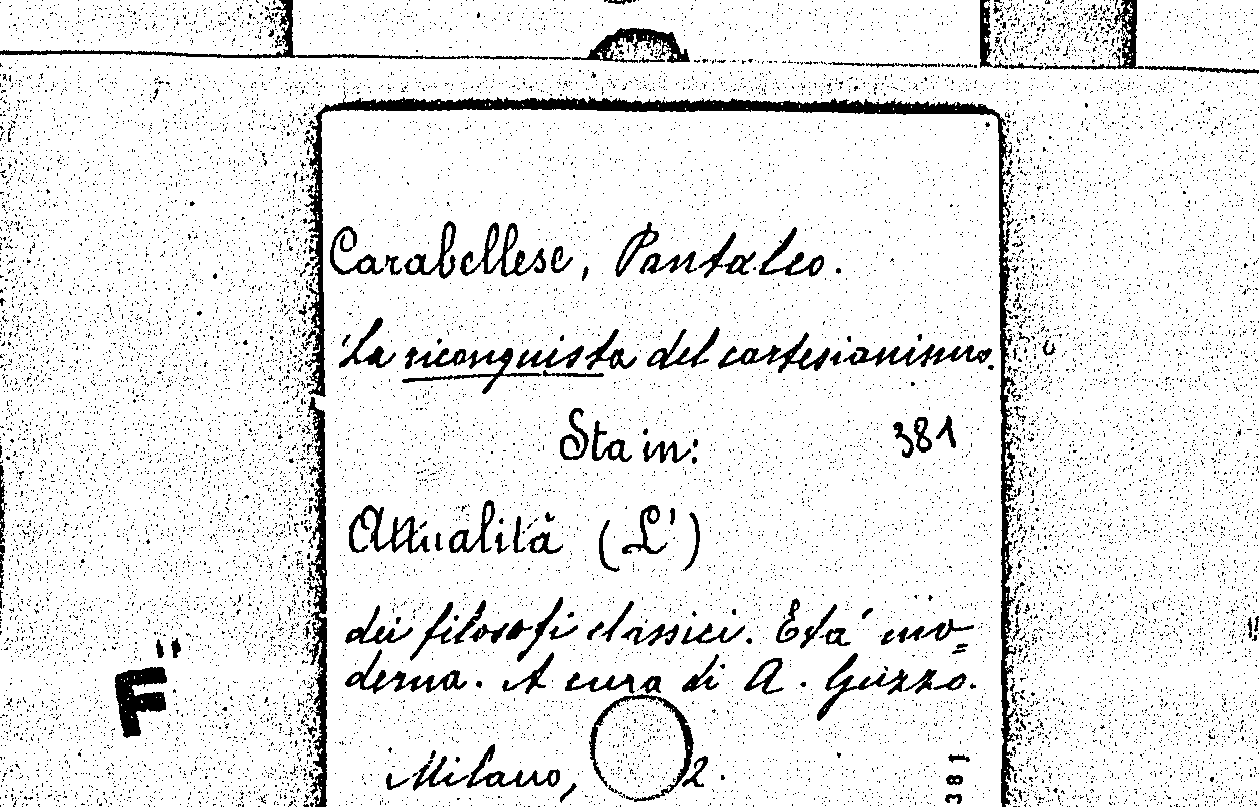 Carabellese, Pantaleo.
La riconquista del cartesianismo.
Sta in:
381
Attualità (L')
dei filosofi classici. Età mo=
derna. A cura di A. Guzzo.
Milano, 2.
F"
381